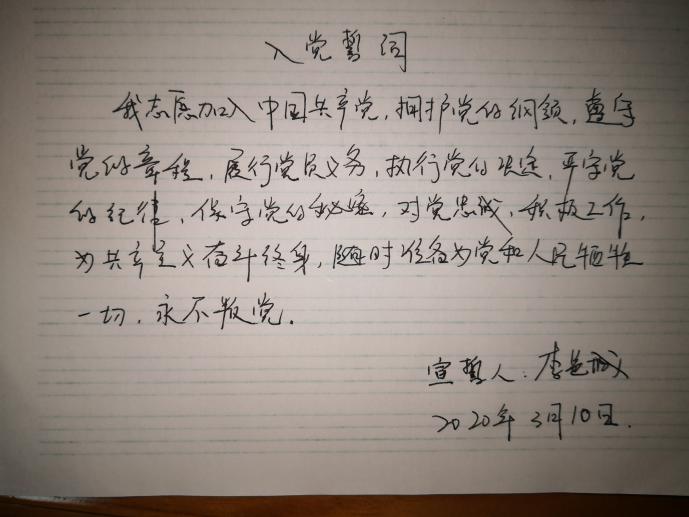 入党誓词
我志愿加入中国共产党，拥护党的纲领，遵守
党的章程，履行党员义务，执行党的决定，严守党
的纪律，保守党的秘密，对党忠诚，积极工作，
为共产主义奋斗终身，随时准备为党和人民牺牲
一切，永不叛党。
宣誓人：李
2020年3月10日.